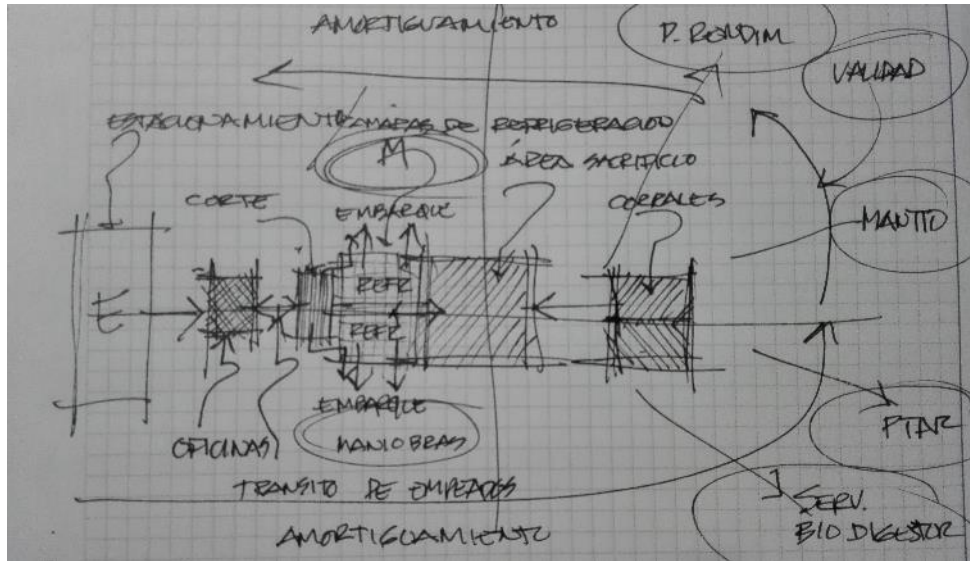 AMORTIGUAMIENTO
P. RENDIM.
VALIDAD
ESTACIONAMIENTO
CAMARAS DE REFRIGERACIO
M
ÁREA SACRIFICIO
CORTE
EMBARQUE
CORRALES
MANTTO
E
REFR
REFR
EMBARQUE
MANIOBRAS
OFICINAS
PTAR
TRANSITO DE EMPEADOS
SERV.
BIO DIGESTOR
AMORTIGUAMIENTO